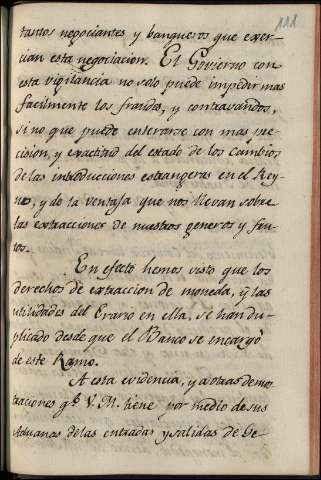 111
tantos negociantes y banqueros que exer-
cian esta negociacion. El Govierno con
esta vigilancia no solo puede impedir mas
facilmente los fraudes, y contravandos,
si no que puede enterarse con mas pre-
cision, y exactitud del estado de los Cambios,
de las introducciones estrangeras en el Rey-
no, y de la ventaja que nos llevan sobre
las extracciones de nuestros generos y fru-
tos.
En efecto hemos visto que los
derechos de extraccion de moneda, y las
utilidades del Erario en ella, se han du-
plicado desde que el Banco se encargò
de este Ramo.
A esta evidencia, y a otras demos
traciones q.e V. M. tiene por medio de sus
Aduanas de las entradas y salidas de Ge-